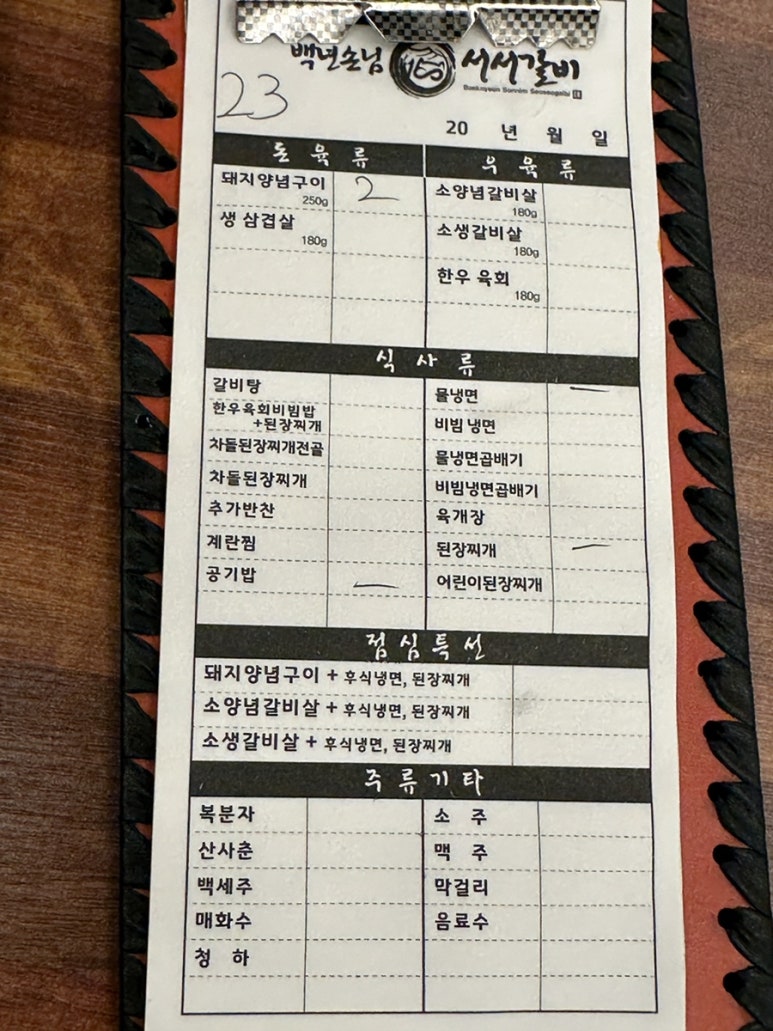 백년손님 서서갈비
23
20 년 월 일
돈 육 류 우 육 류
돼지양념구이 2 소양념갈비살
250g 180g
생 삼겹살 소생갈비살
180g 180g
한우 육회
180g
식 사 류
갈비탕 물냉면 —
한우육회비빔밥 비빔냉면
+된장찌개
차돌된장찌개전골 물냉면곱배기
차돌된장찌개 비빔냉면곱배기
추가반찬 육개장
계란찜 된장찌개 —
공기밥 — 어린이된장찌개
점심특선
돼지양념구이 + 후식냉면, 된장찌개
소양념갈비살 + 후식냉면, 된장찌개
소생갈비살 + 후식냉면, 된장찌개
주류기타
복분자 소 주
산사춘 맥 주
백세주 막걸리
매화수 음료수
청 하